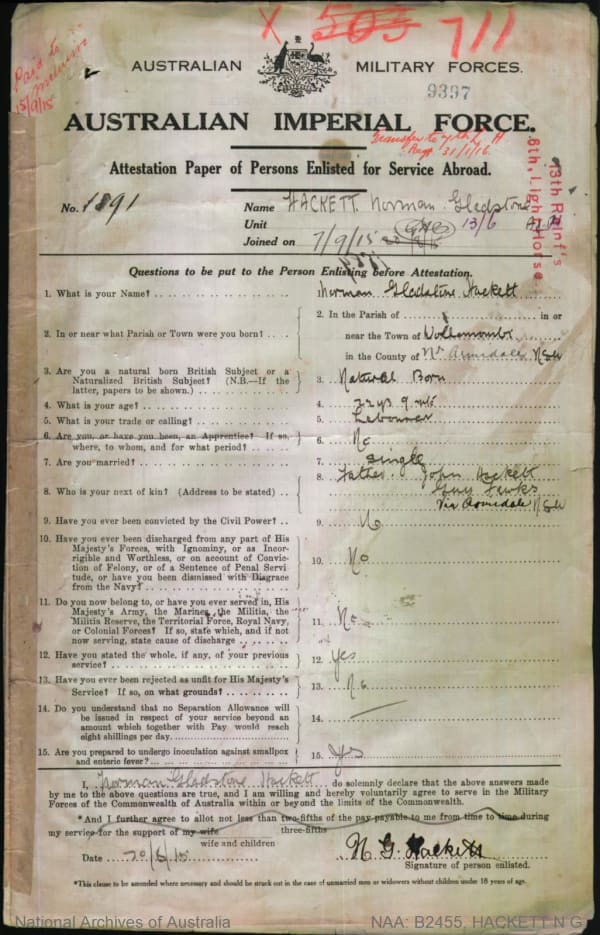 X 503 711
Paid to
15/9/15
AUSTRALIAN MILITARY FORCES.
9397
AUSTRALIAN IMPERIAL FORCE.
Transfer to 7th L. H
Regt 31/1/16
Attestation Paper of Persons Enlisted for Service Abroad.
13th Reinf's
6th, Light Horse.
No. 1891 Name HACKETT Norman Gladstone
Unit 13/6 ALH
Joined on 7/9/15
Questions to be put to the Person Enlisting before Attestation.
1. What is your Name? Norman Gladstone Hackett
2. In or near what Parish or Town were you born?
2. In the Parish of in or
near the Town of Wollomombi
in the County of Nr Armidale NSW
3. Are you a natural born British Subject or a
Naturalized British Subject? (N.B.—If the
latter, papers to be shown.)
3. Natural Born
4. What is your age? 4. 22 yrs 9 mts
5. What is your trade or calling? 5. Labourer
6. Are you, or have you been, an Apprentice? If so,
where, to whom, and for what period?
6. No
7. Are you married? 7. Single
8. Who is your next of kin? (Address to be stated)
8. Father John Hackett
Guy Fawkes
Via Armidale NSW
9. Have you ever been convicted by the Civil Power? 9. No
10. Have you ever been discharged from any part of His
Majesty's Forces, with Ignominy, or as Incor-
rigible and Worthless, or on account of Convic-
tion of Felony, or of a Sentence of Penal Servi-
tude, or have you been dismissed with Disgrace
from the Navy?
10. No
11. Do you now belong to, or have you ever served in, His
Majesty's Army, the Marines, the Militia, the
Militia Reserve, the Territorial Force, Royal Navy,
or Colonial Forces? If so, state which, and if not
now serving, state cause of discharge
11. No
12. Have you stated the whole, if any, of your previous
service?
12. Yes
13. Have you ever been rejected as unfit for His Majesty's
Service? If so, on what grounds?
13. No
14. Do you understand that no Separation Allowance will
be issued in respect of your service beyond an
amount which together with Pay would reach
eight shillings per day.
14.
15. Are you prepared to undergo inoculation against smallpox
and enteric fever?
15. Yes
I, Norman Gladstone Hackett do solemnly declare that the above answers made
by me to the above questions are true, and I am willing and hereby voluntarily agree to serve in the Military
Forces of the Commonwealth of Australia within or beyond the limits of the Commonwealth.
*And I further agree to allot not less than two-fifths of the pay payable to me from time to time during
three-fifths
my service for the support of my wife
wife and children
Date 20/8/15 N G Hackett
Signature of person enlisted.
*This clause to be amended where necessary and should be struck out in the case of unmarried men or widowers without children under 18 years of age.
National Archives of Australia NAA: B2455, HACKETT N G